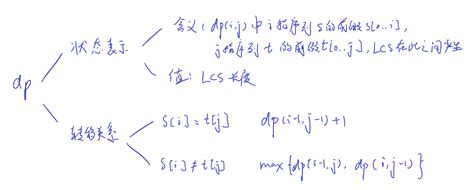 dp
状态表示
含义(dp(i,j)中i指序列s的前缀s[0..i],
j指序列t的前缀t[0..j], LCS在此之间产生
值: LCS长度
转移关系
s[i] = t[j] dp(i-1, j-1)+1
s[i] ≠ t[j] max{dp(i-1,j), dp(i,j-1)}